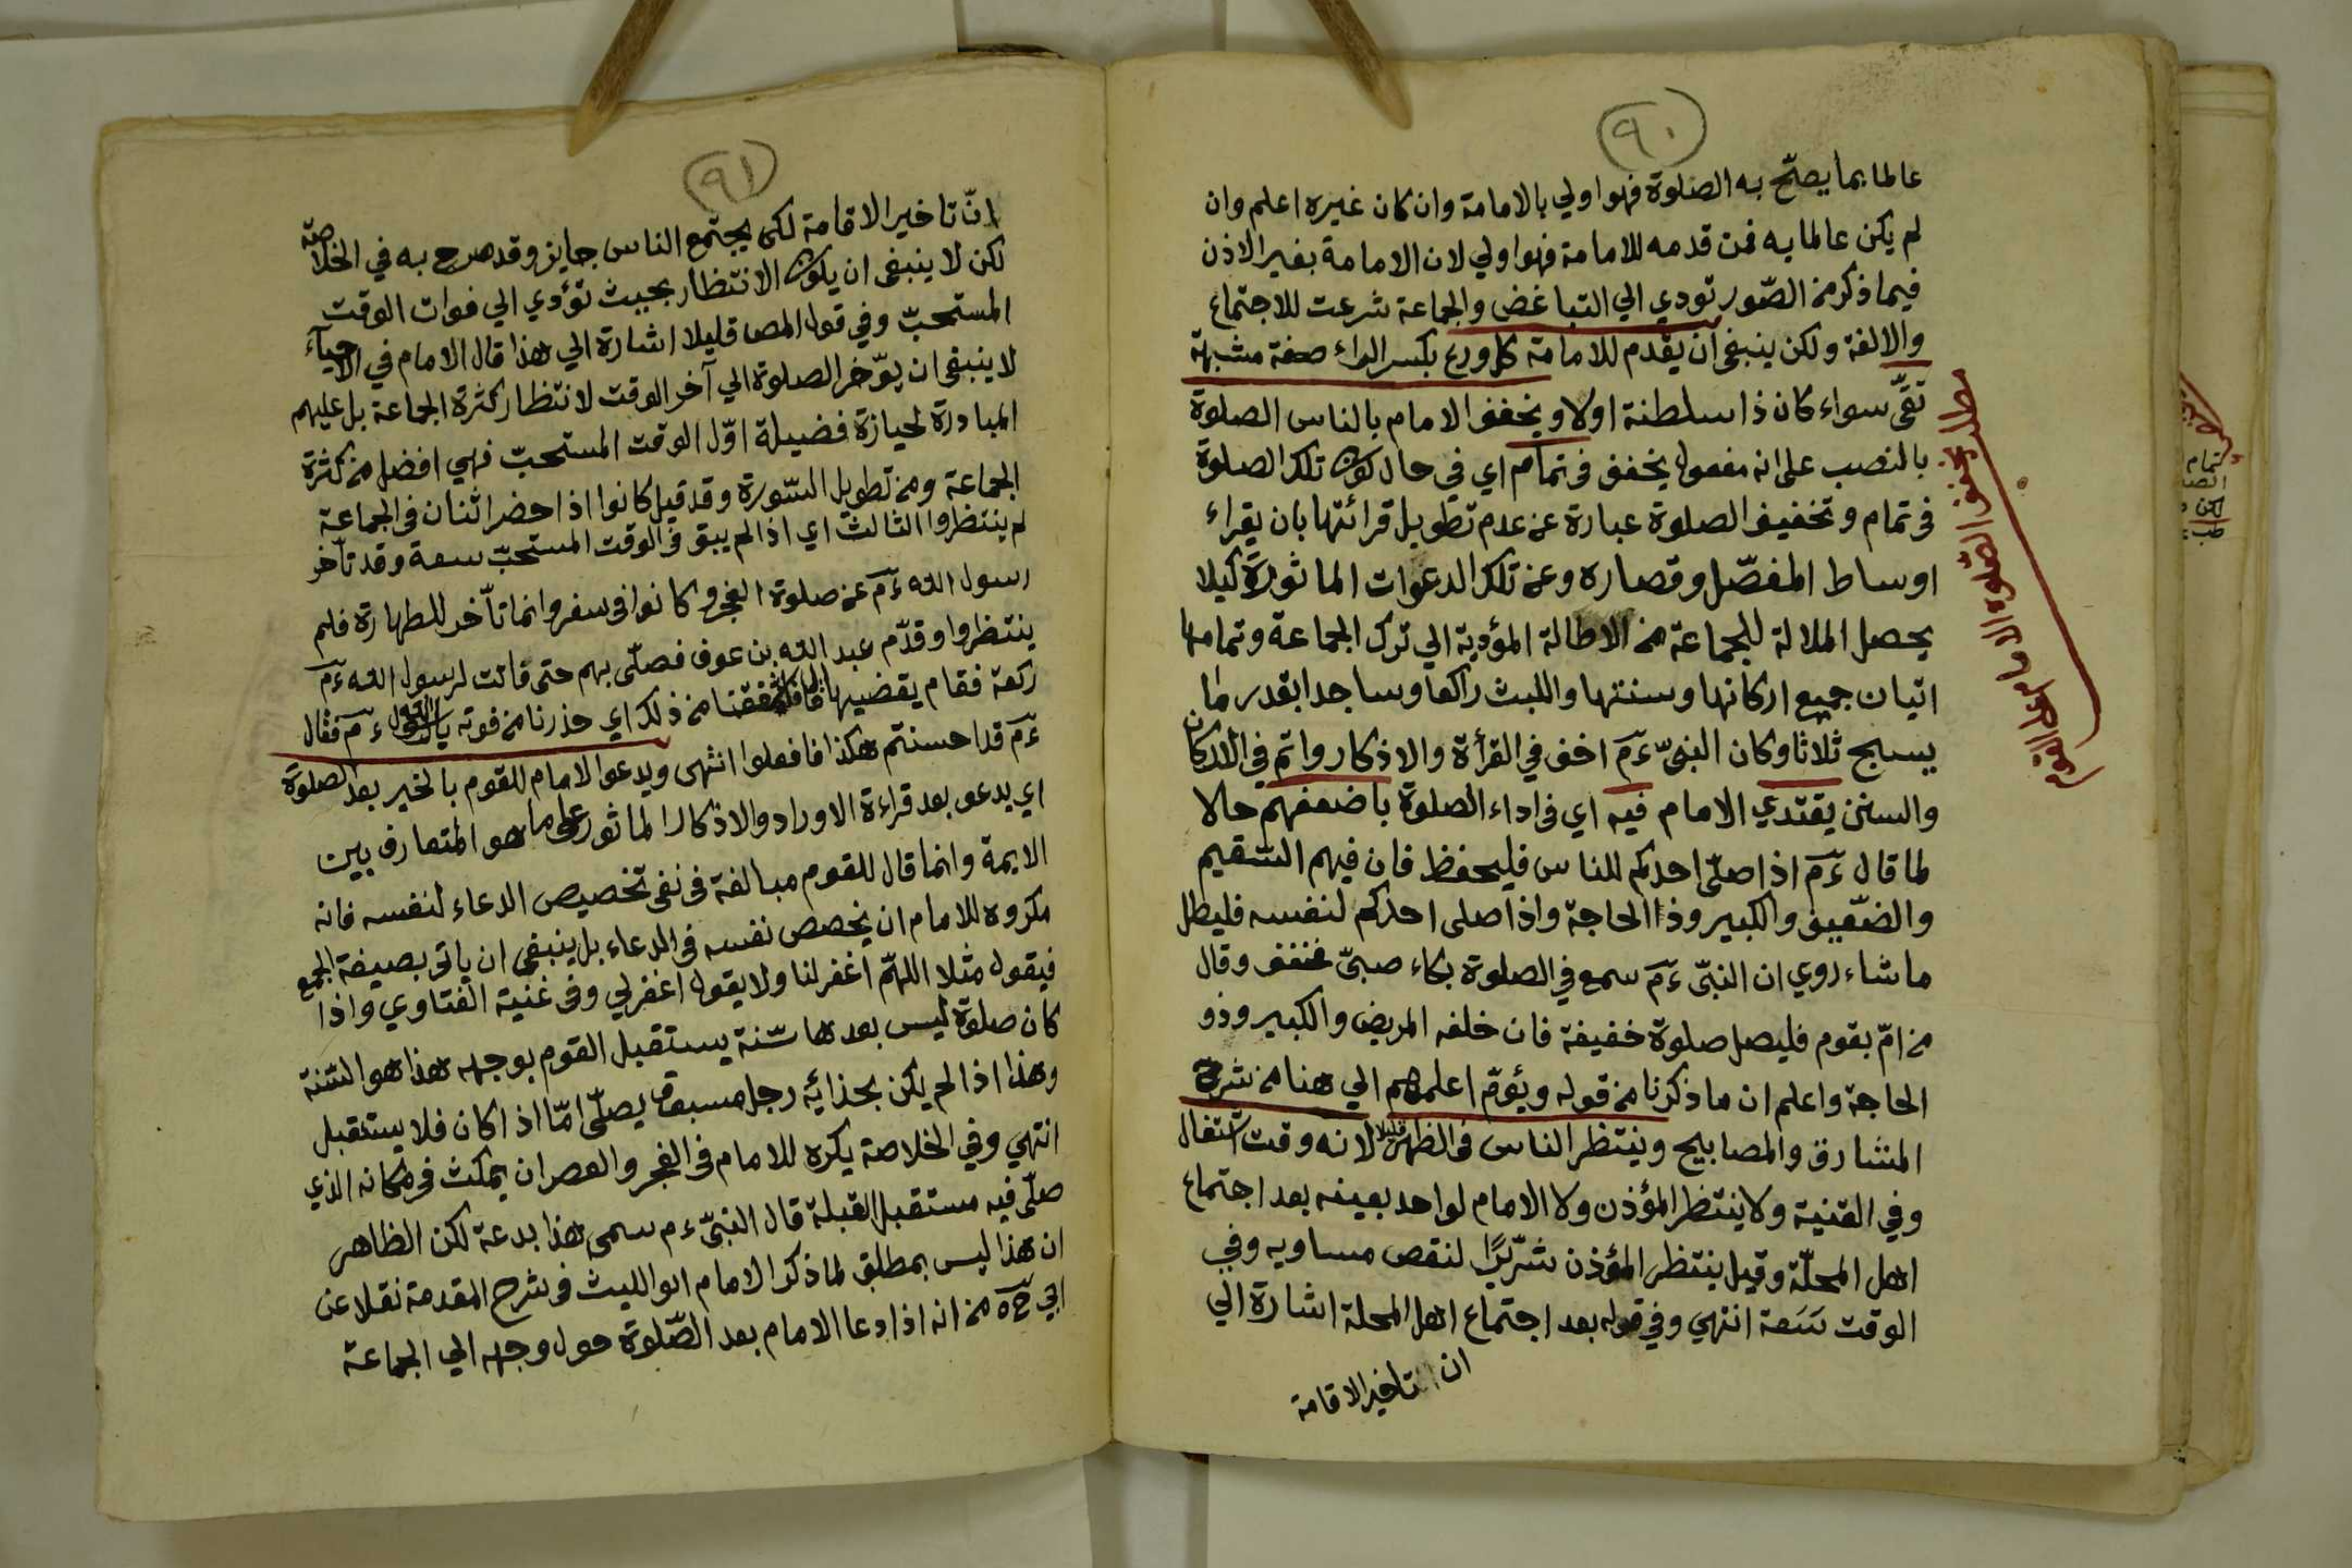 ٩٠
عالما بما يصحّ به الصلوة فهو اولي بالامامة وان كان غيره اعلم وان
لم يكن عالما به فمن قدمه للامامة فهو اولي لان الامامة بغير الاذن
فيما ذكر من الصّور تودي الي التباغض والجماعة شرعت للاجتماع
والالفة ولكن ينبغي ان يقدم للامامة كل ورع بكسر الراء صفة مشبهة
تقّي سواء كان ذا سلطنة اولا ويخفف الامام بالناس الصلوة
بالنصب علي انه مفعول يخفف في تمام اي في حال كون تلك الصلوة
في تمام وتخفيف الصلوة عبارة عن عدم تطويل قرائتها بان يقراء
اوساط المفصّل وقصاره وعن تلك الدعوات الماثورة كيلا
يحصل الملالة للجماعة من الاطالة المؤدية الي ترك الجماعة وتمامها
اتيان جميع اركانها وسنتها واللبث راكعا وساجدا بقدر ما
يسبح ثلاثا وكان النبيّ ءم اخف في القرأة والاذكار واتم في الاركان
والسنن يقتدي الامام فيه اي في اداء الصلوة باضعفهم حالا
لما قال ءم اذا صلّي احدكم للناس فليحفظ فان فيهم السّقيم
والضّعيف والكبير وذا الحاجة واذا صلى احدكم لنفسه فليطل
ما شاء روي ان النبّي ءم سمع في الصلوة بكاء صبيّ فخفف وقال
من امّ بقوم فليصل صلوة خفيفة فان خلفه المريض والكبير وذو
الحاجة واعلم ان ما ذكرنا من قوله ويؤمّ اعلمهم الي هنا من شرح
المشارق والمصابيح وينتظر الناس في الظهر قليلا لانه وقت اشتغال
وفي القنية ولا ينتظر المؤذن ولا الامام لواحد بعينه بعد اجتماع
اهل المحلّة وقيل ينتظر المؤذن شرّيرًا لنقص مساويه وفي
الوقت سَعة انتهي وفي قوله بعد اجتماع اهل المحلة اشارة الي
ان تاخير الاقامة
مطلب يخفف الصلوة الامام
٩١
انّ تاخير الاقامة لكي يجتمع الناس جايز وقد صرح به في الخلاصة
لكن لا ينبغي ان يكون الانتظار بحيث تؤدي الي فوات الوقت
المستحبّ وفي قول المص قليلا اشارة الي هذا قال الامام في الاحياء
لا ينبغي ان يؤخر الصلوة الي آخر الوقت لانتظار كثرة الجماعة بل عليهم
المبادرة لحيازة فضيلة اوّل الوقت المستحبّ فهي افضل من كثرة
الجماعة ومن تطويل السّورة وقد قيل كانوا اذا حضر اثنان في الجماعة
لم ينتظروا الثالث اي اذا لم يبق في الوقت المستحبّ سعة وقد تأخر
رسول الله ءم عن صلوة الفجر وكانوا في سفر وانما تأخر للطهارة فلم
ينتظروا وقدّم عبد الله بن عوف فصلّي بهم حتى فاتت لرسول الله ءم
ركعة فقام يقضيها فاشفقنا من ذلك اي حذرنا من فوته ءم فقال
ءم قد احسنتم هكذا فافعلوا انتهى ويدعو الامام للقوم بالخير بعد الصلوة
اي يدعو بعد قراءة الاوراد والاذكار الماثور على ما هو المتعارف بين
الايمة وانما قال للقوم مبالغة في نفي تخصيص الدعاء لنفسه فانه
مكروه للامام ان يخصص نفسه في الدعاء بل ينبغي ان ياتي بصيغة الجمع
فيقول مثلا اللهمّ اغفر لنا ولا يقول اغفر لي وفي غنية الفتاوي واذا
كان صلوة ليس بعدها سّنة يستقبل القوم بوجهه هذا هو السّنة
وهذا اذا لم يكن بحذائه رجل مسبوق يصلّي امّا اذا كان فلا يستقبل
انتهي وفي الخلاصة يكره للامام في الفجر والعصر ان يمكث في مكانه الذي
صلّي فيه مستقبل القبلة قال النبّي ءم سمى هذا بدعة لكن الظاهر
ان هذا ليس بمطلق لما ذكر الامام ابو الليث في شرح المقدمة نقلا عن
ابي ح ه من انه اذا دعا الامام بعد الصّلوة حول وجهه الي الجماعة